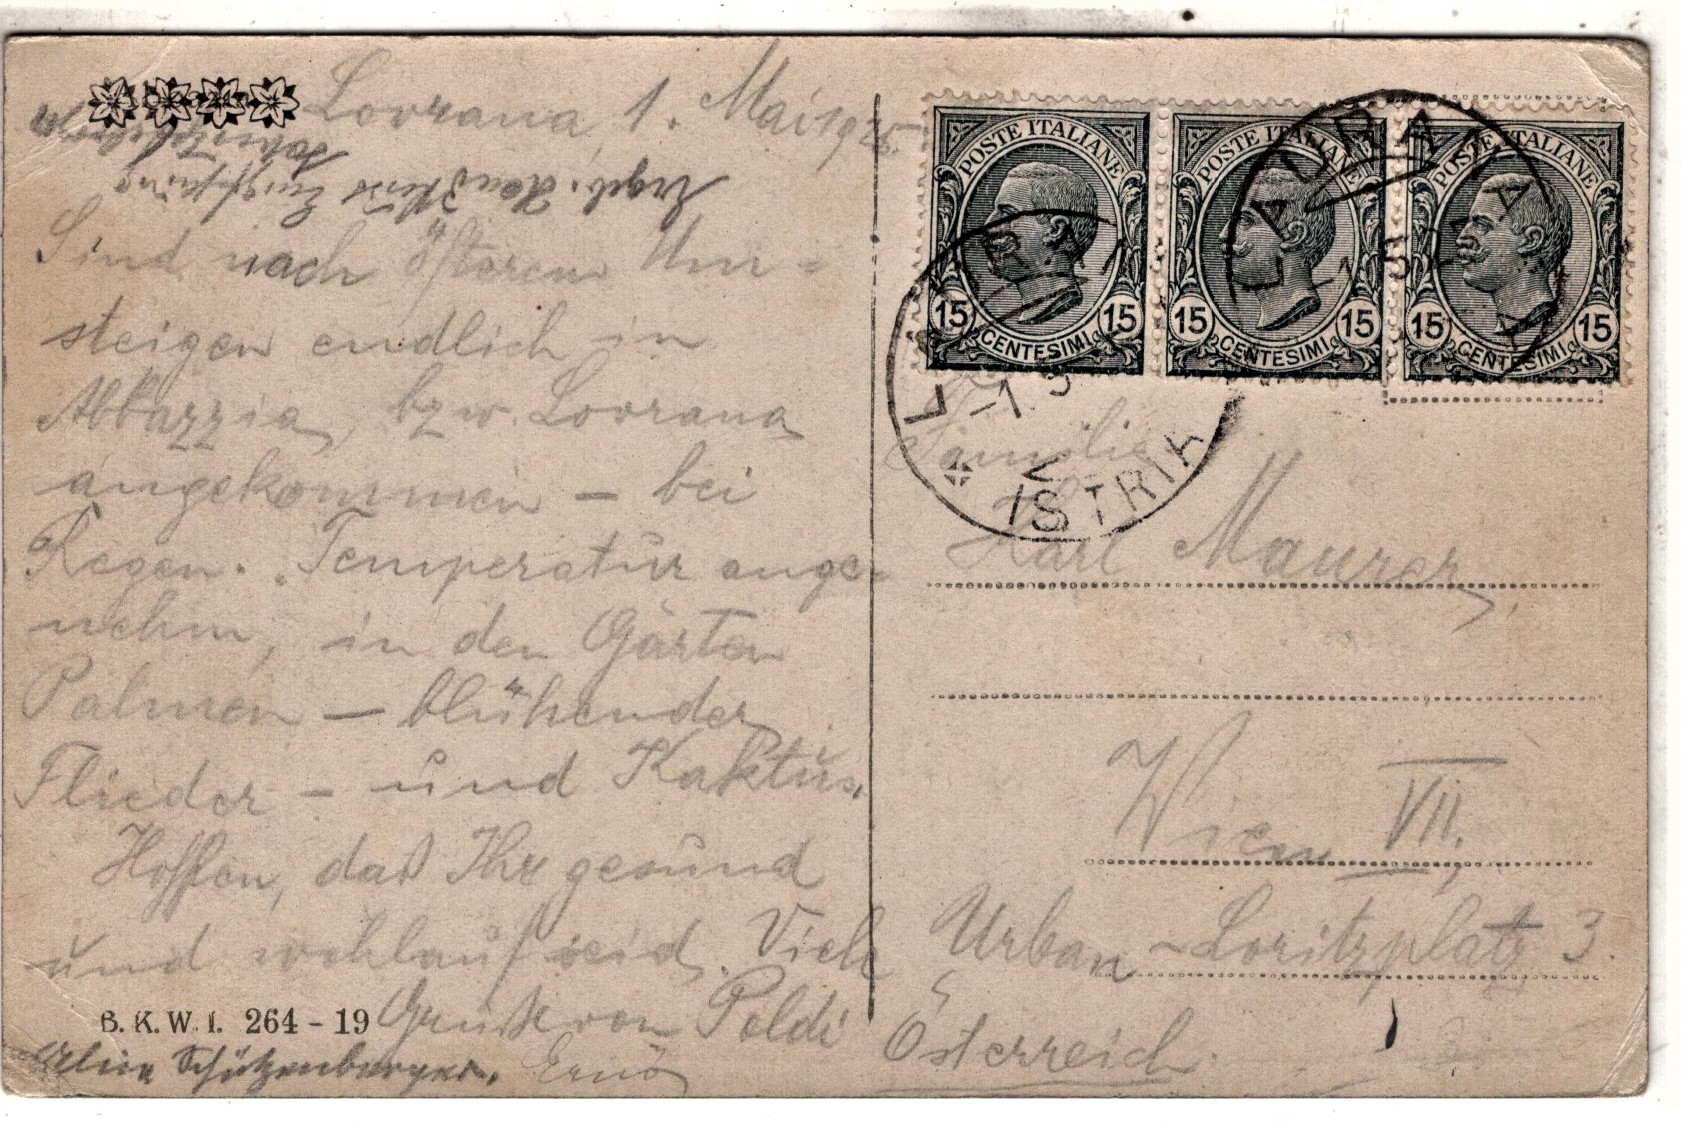 Lovrana, 1. Mai 1925.
Sind nach öfterem Um-
steigen endlich in
Abbazzia, bzw. Lovrana
angekommen – bei
Regen. Temperatur ange-
nehm, in den Gärten
Palmen – blühender
Flieder – und Kaktus.
Hoffen, daß Ihr gesund
und wohlauf seid. Viele
Grüße von Poldi
B. K. W. I. 264 - 19
Schützenburger. Ernö
POSTE ITALIANE
15 15
CENTESIMI
POSTE ITALIANE
15 15
CENTESIMI
POSTE ITALIANE
15 15
CENTESIMI
LAURANA
ISTRIA
LAURANA
Familie
Karl Maurer,
Wien VII,
Urban-Loritzplatz 3.
Österreich.